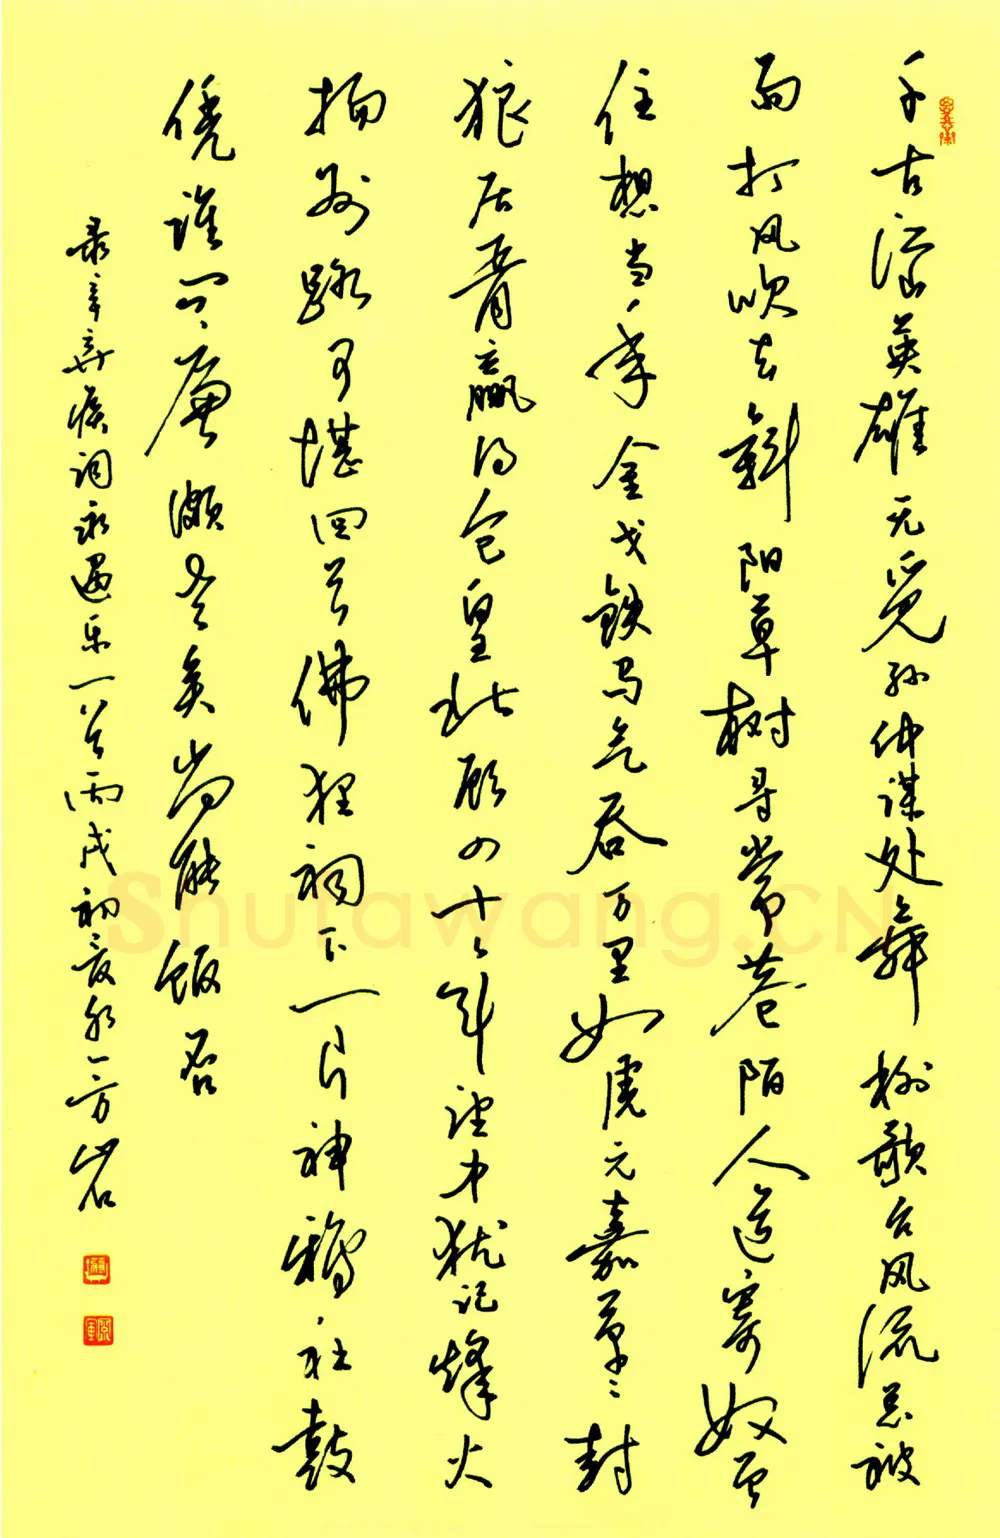 千古江山英雄无觅孙仲谋处舞榭歌台风流总被
雨打风吹去斜阳草树寻常巷陌人道寄奴曾
住想当年金戈铁马气吞万里如虎元嘉草草封
狼居胥赢得仓皇北顾四十三年望中犹记烽火
扬州路可堪回首佛狸祠下一片神鸦社鼓
凭谁问廉颇老矣尚能饭否
录辛弃疾词永遇乐一首丙戌初夏 一方岩
Shufawang.CN